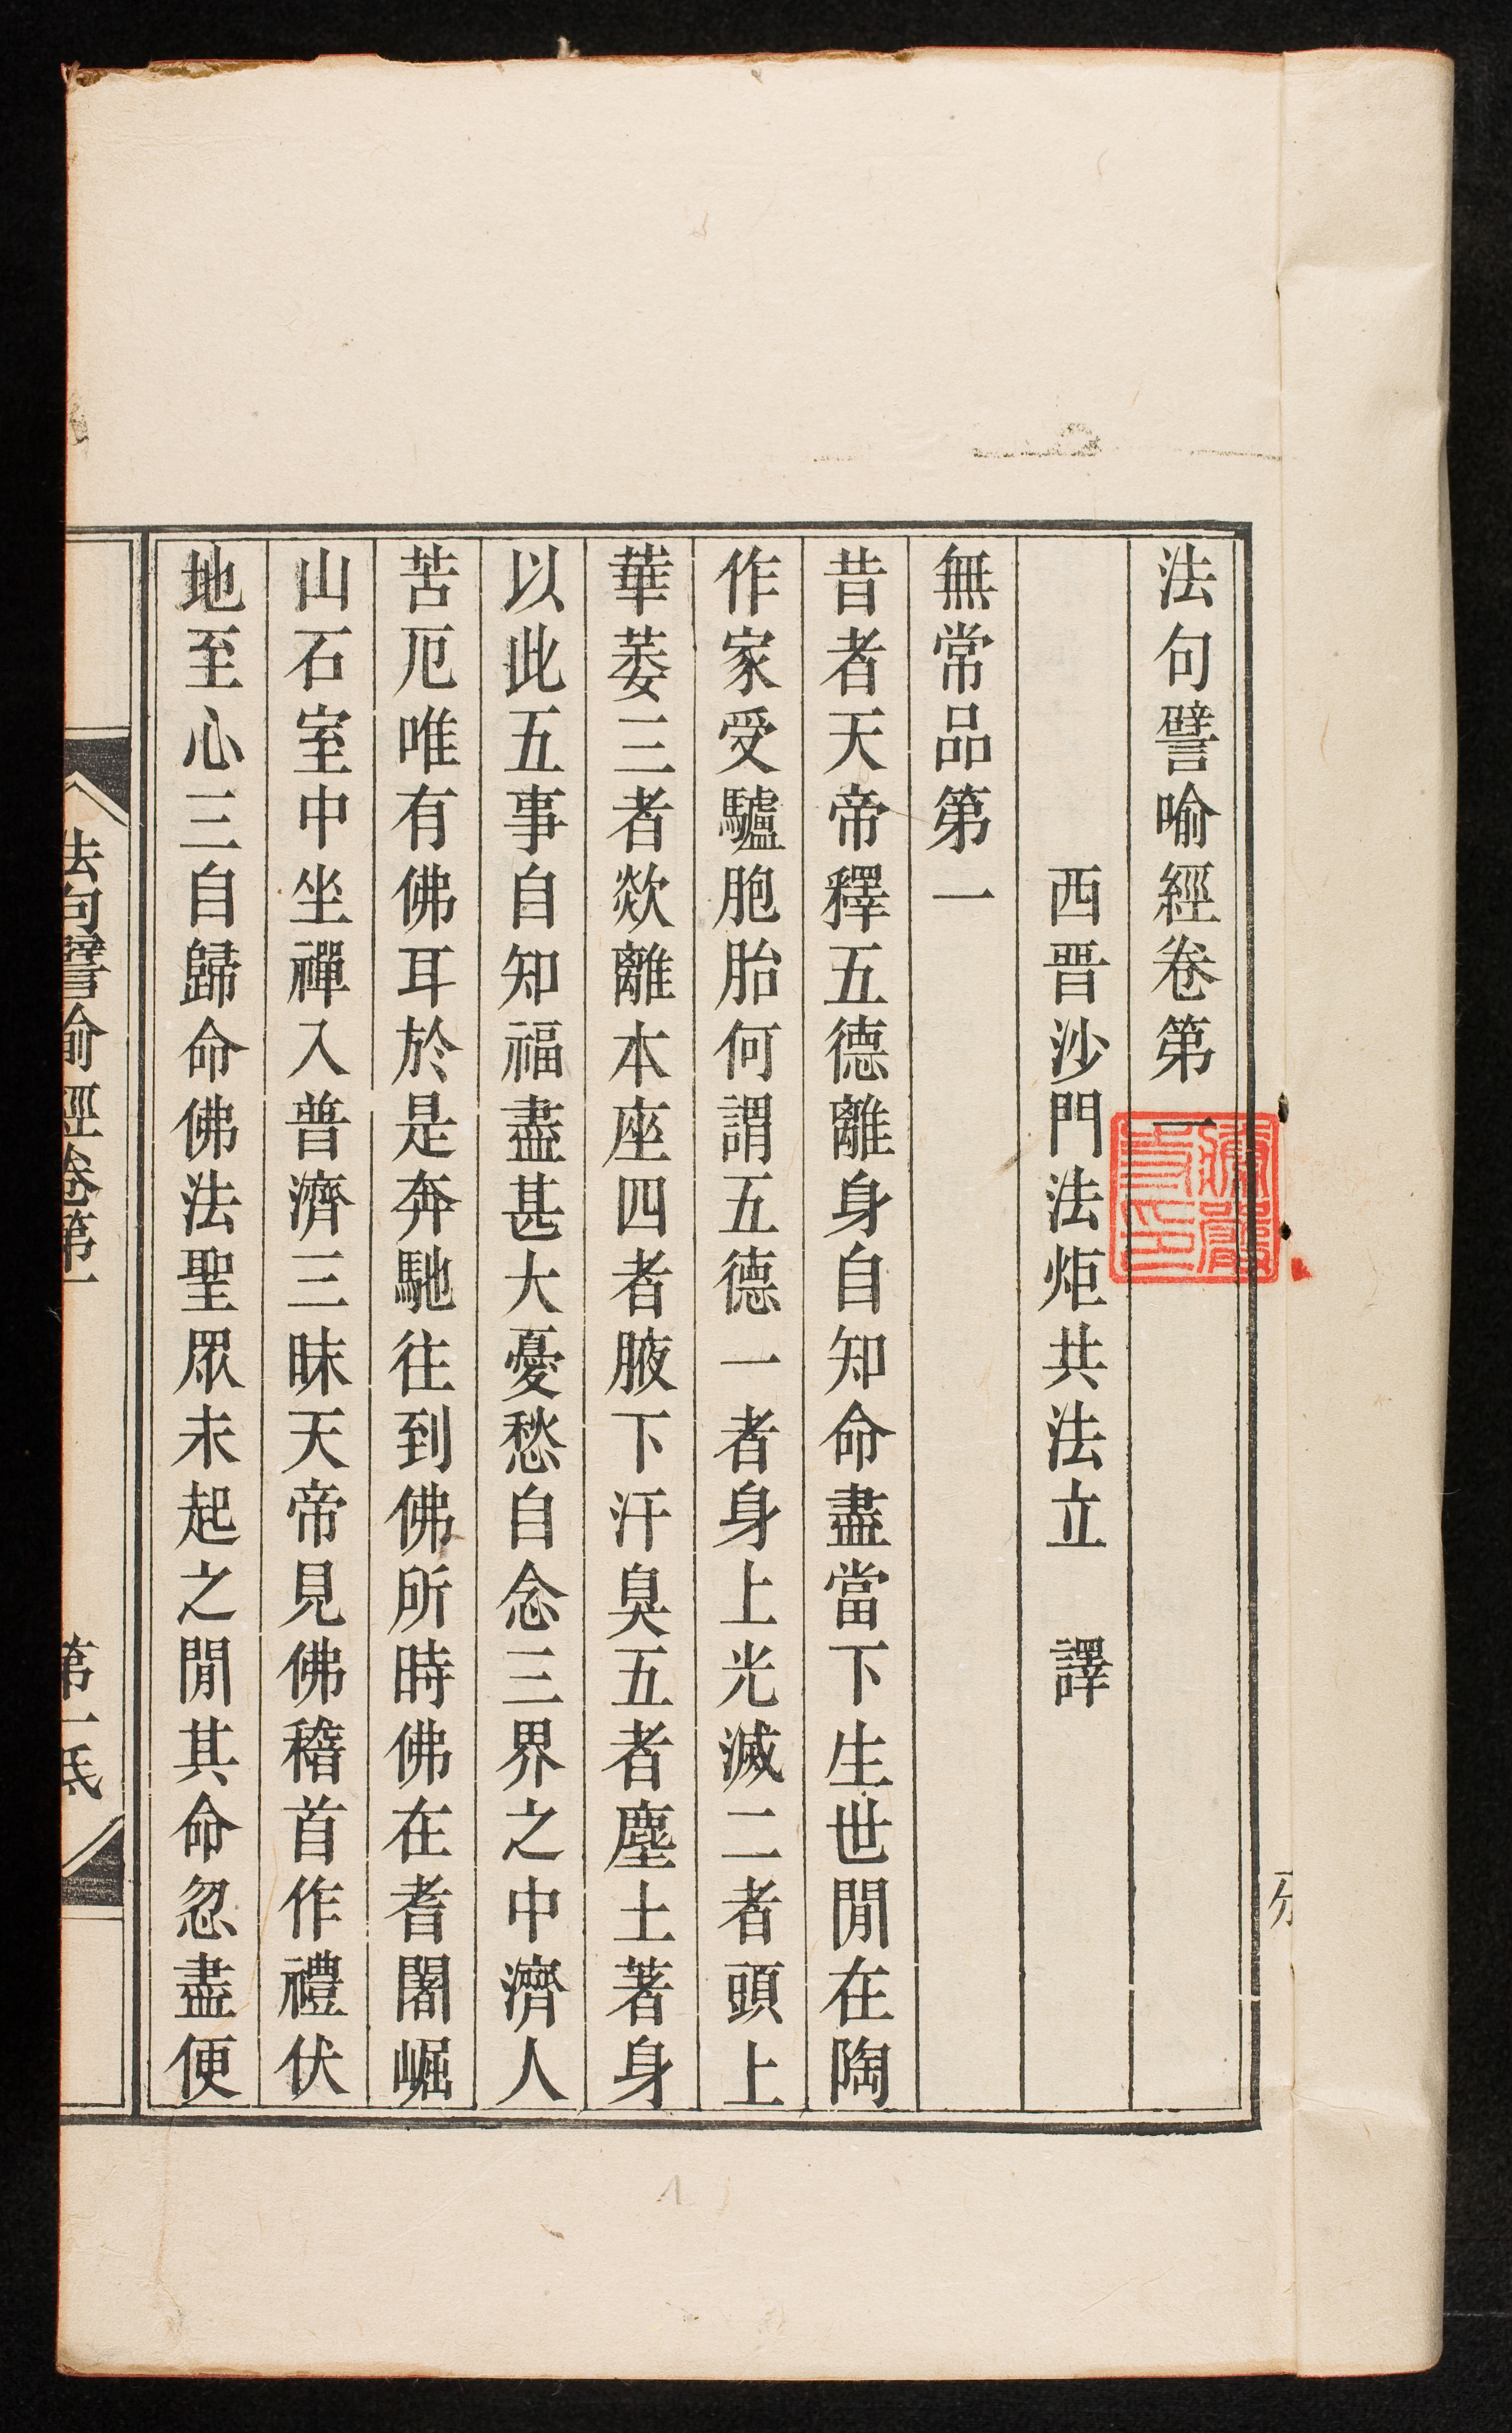 法句譬喻經卷第一
西晋沙門法炬共法立　譯
無常品第一
昔者天帝釋五德離身自知命盡當下生世閒在陶
作家受驢胞胎何謂五德一者身上光滅二者頭上
華萎三者欻離本座四者腋下汗臭五者塵土著身
以此五事自知福盡甚大憂愁自念三界之中濟人
苦厄唯有佛耳於是奔馳往到佛所時佛在耆闍崛
山石室中坐禪入普濟三昧天帝見佛稽首作禮伏
地至心三自歸命佛法聖眾未起之閒其命忽盡便
法句譬喻經卷第一
第一底